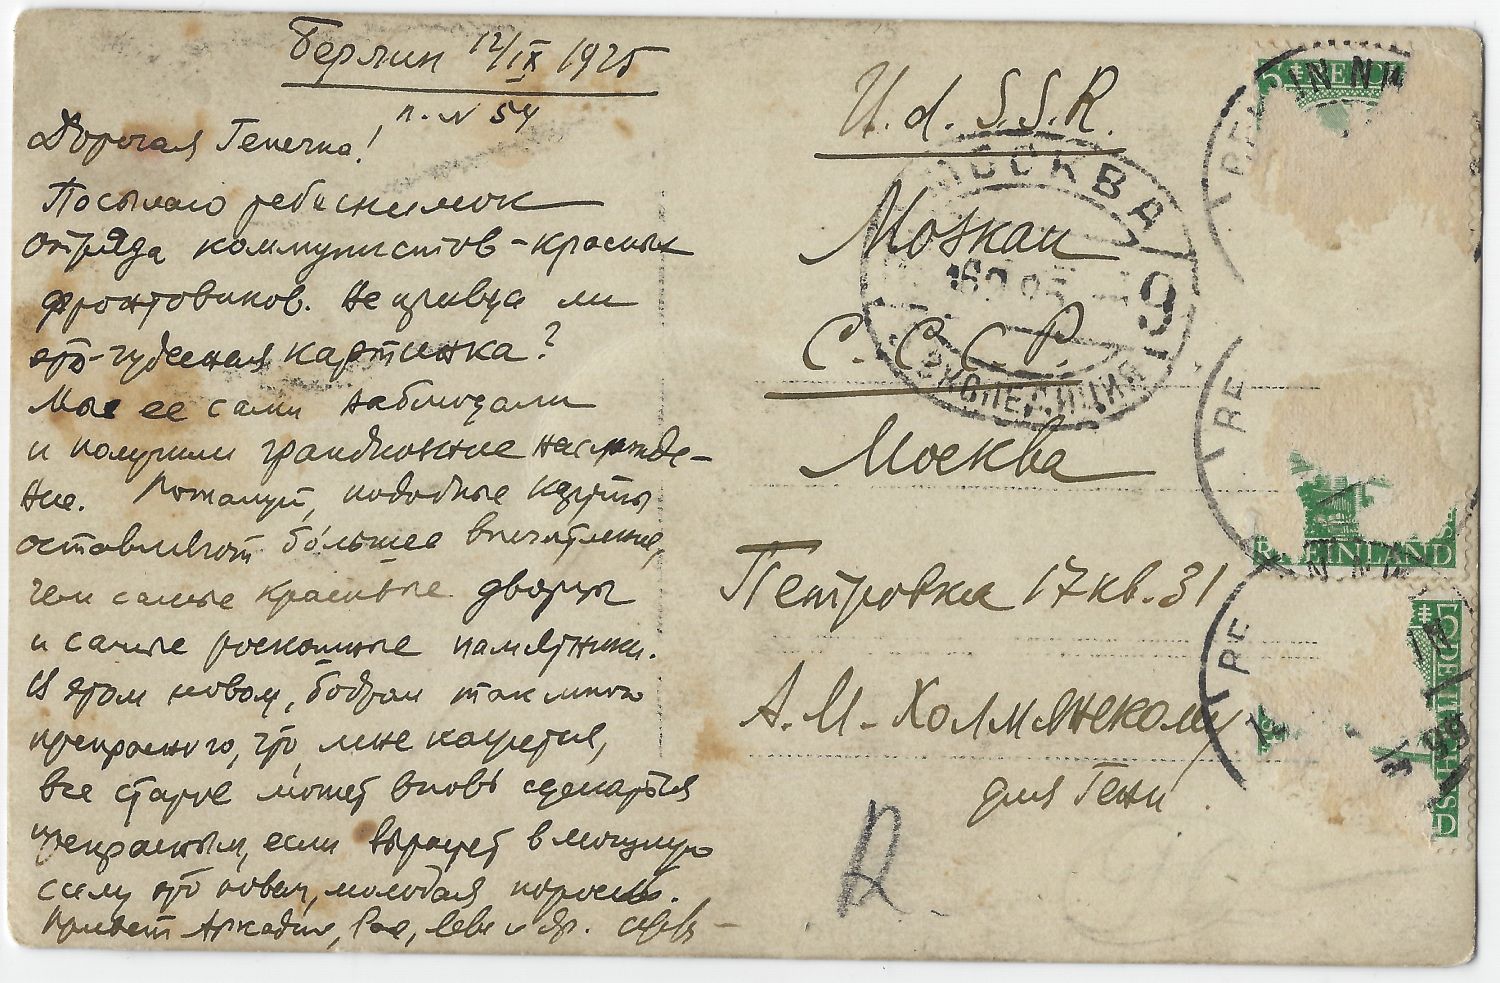 Берлин 12/IX 1925
п. N 54
Дорогая Генечка!
Посылаю тебе снимок
отряда коммунистов-красных
фронтовиков. Не правда ли
это-чудесная картинка?
Мы ее сами наблюдали
и получили грандиозное наслажде-
ние. Пожалуй, подобные карты
оставляют большее впечатление,
чем самые красивые дворцы
и самые роскошные памятники.
В этом новом, бодром так много
прекрасного, что, мне кажется,
все старое может вновь сделаться
прекрасным, если вырастет в могучую
силу эта новая, молодая поросль.
Привет Аркадию, Рае, Леве и др.
U.d.S.S.R.
Moskau
С.С.С.Р.
Москва
Петровка 17 кв. 31
А.М. Холмянскому
для Гени.
R.
МОСКВА
9
ЭКСПЕДИЦИЯ
5
RE
RE
RHEINLAND
RE
5
DEUTSCHES